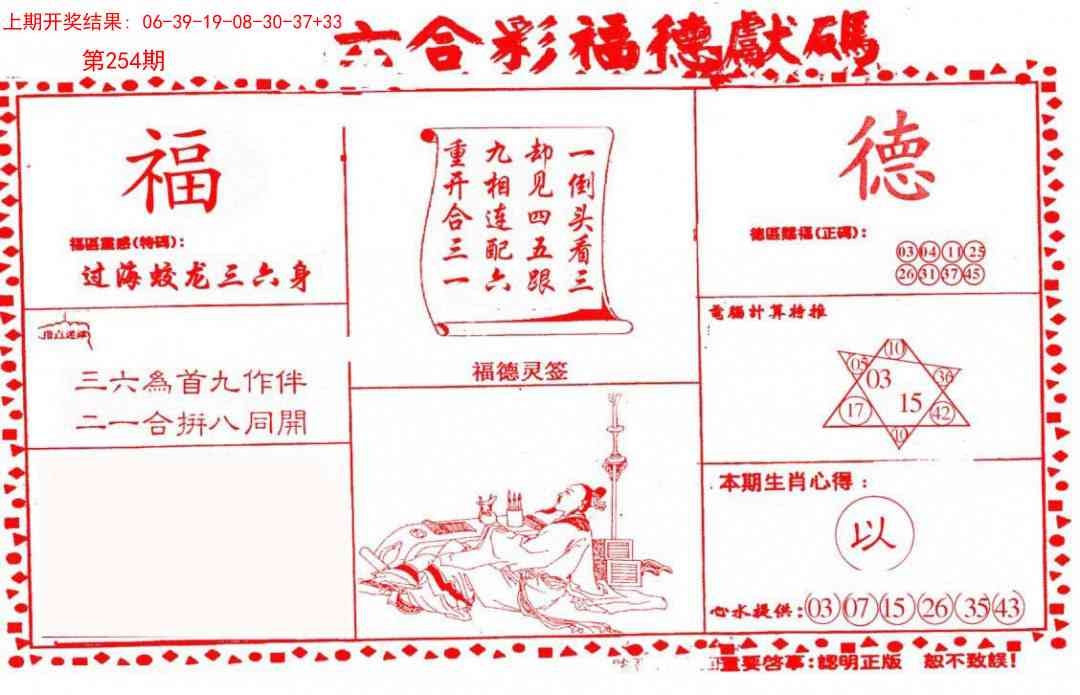 上期开奖结果：06-39-19-08-30-37+33
第254期
六合彩福德獻碼
福
福區靈感(特碼)：
过海蛟龙三六身
三六為首九作伴
二一合拚八同開
一倒头看三
却见四五跟
九相连配六
重开合三一
福德灵签
德
德區賜福(正碼)：
03 04 11 25
26 31 37 45
電腦計算特推
10
05 03 36
17 15 42
10
本期生肖心得：
以
心水提供：03 07 15 26 35 43
重要啓事：認明正版 恕不致誤！